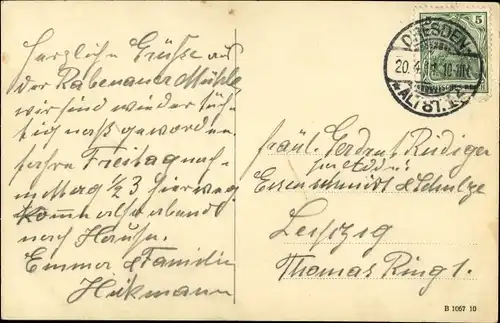 Herzliche Grüße aus
der Rabenauer Mühle
wir sind wieder tüch-
tig naß geworden
fahre Freitag nach-
mittag ½ 3 hierweg
komme also abend
nach Hause.
Emma & Familie
Hükmann
DRESDEN
20.4. 10-11
ALTST.
5
Fräul. Gertrud Rüdiger
Eisenschmidt & Schulze
Leipzig
Thomas Ring 1.
B 1067 10